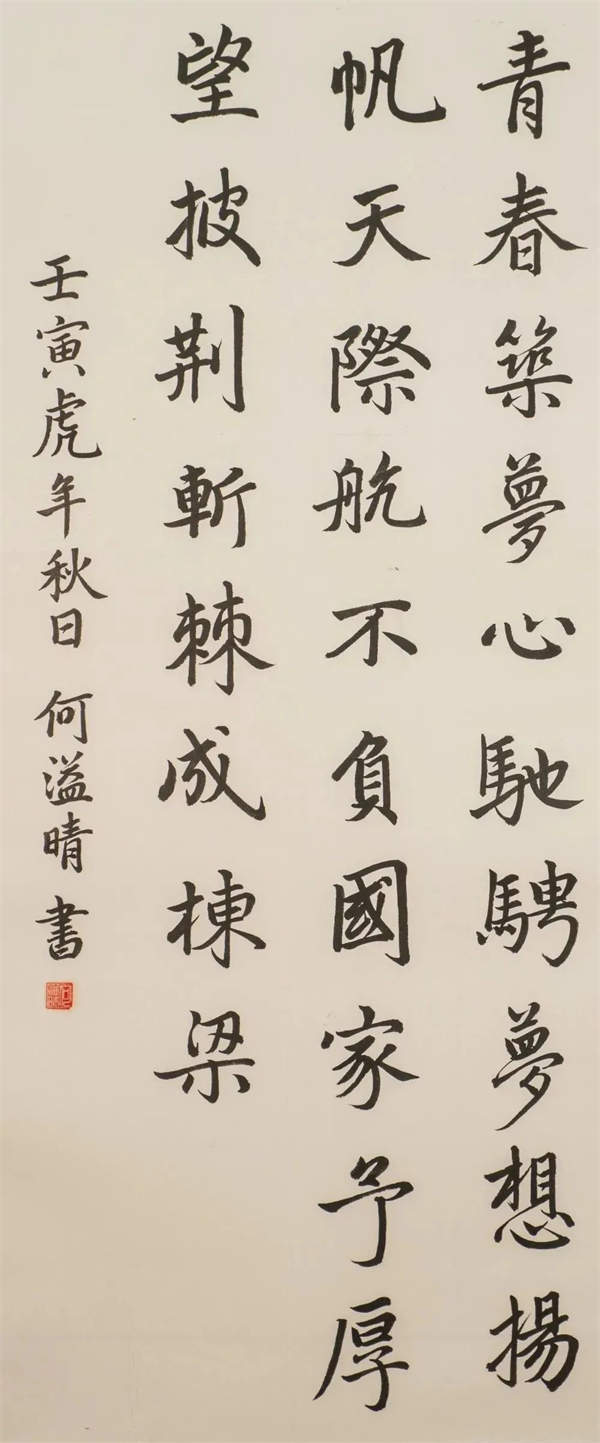 青春築夢心馳騁夢想揚
帆天際航不負國家予厚
望披荆斬棘成棟梁
壬寅虎年秋日 何溢晴書